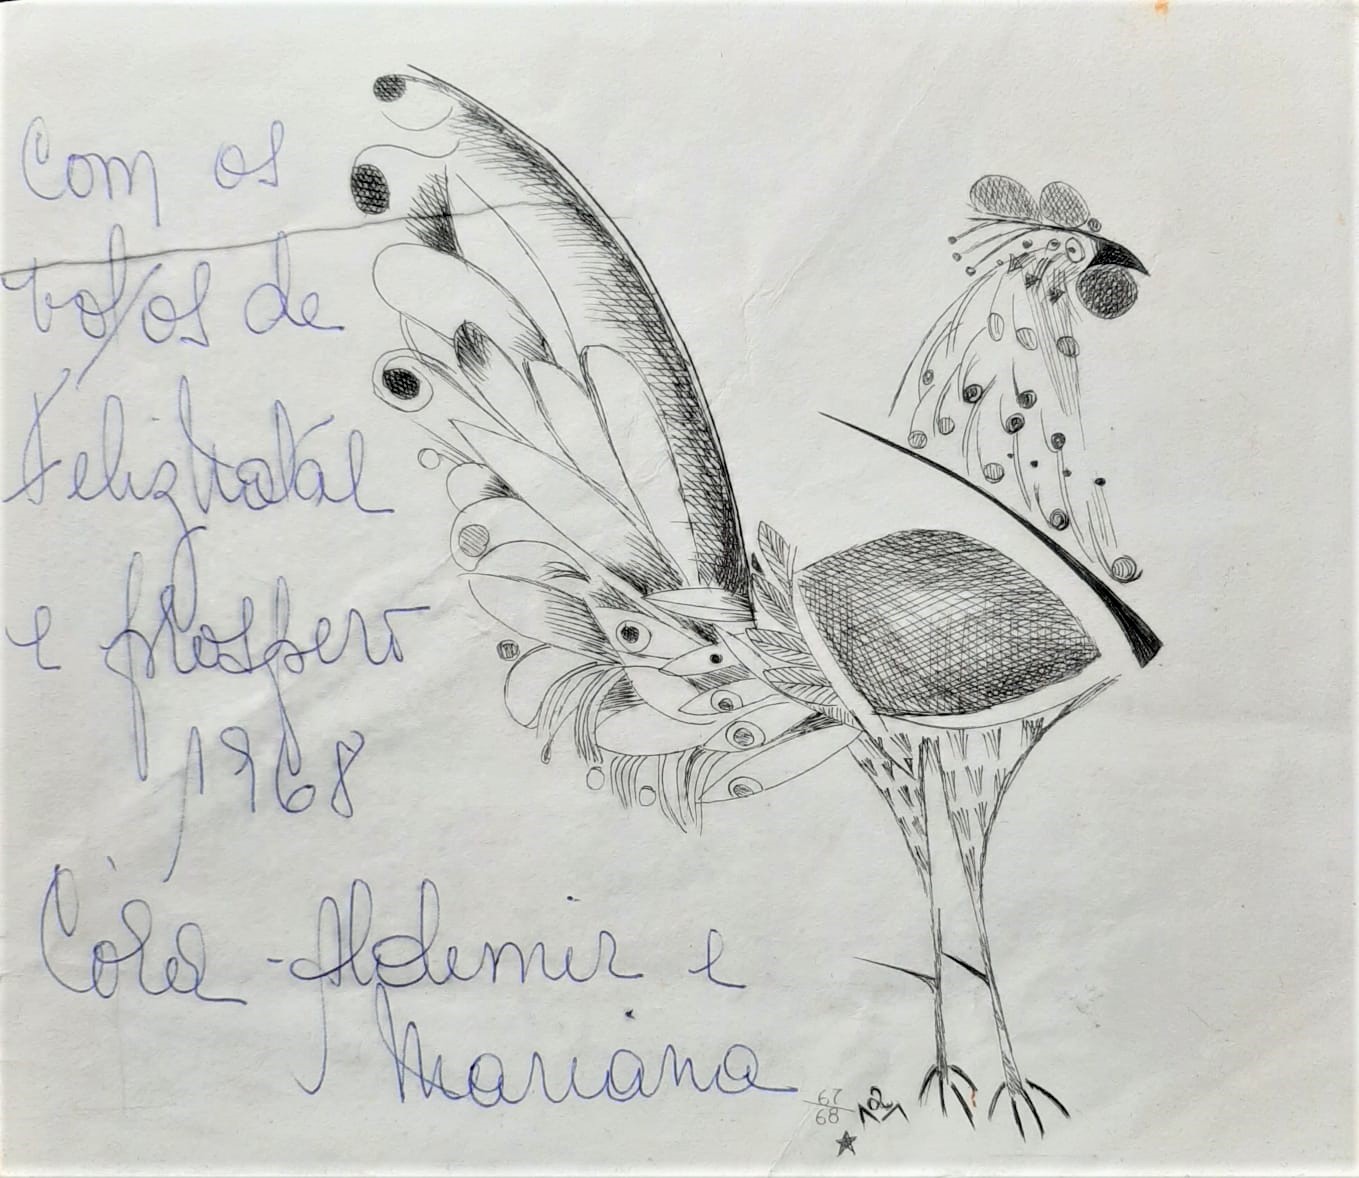 Com os
votos de
Feliz Natal
e prospero
1968
Córa - Aldemir e
Mariana
67
68